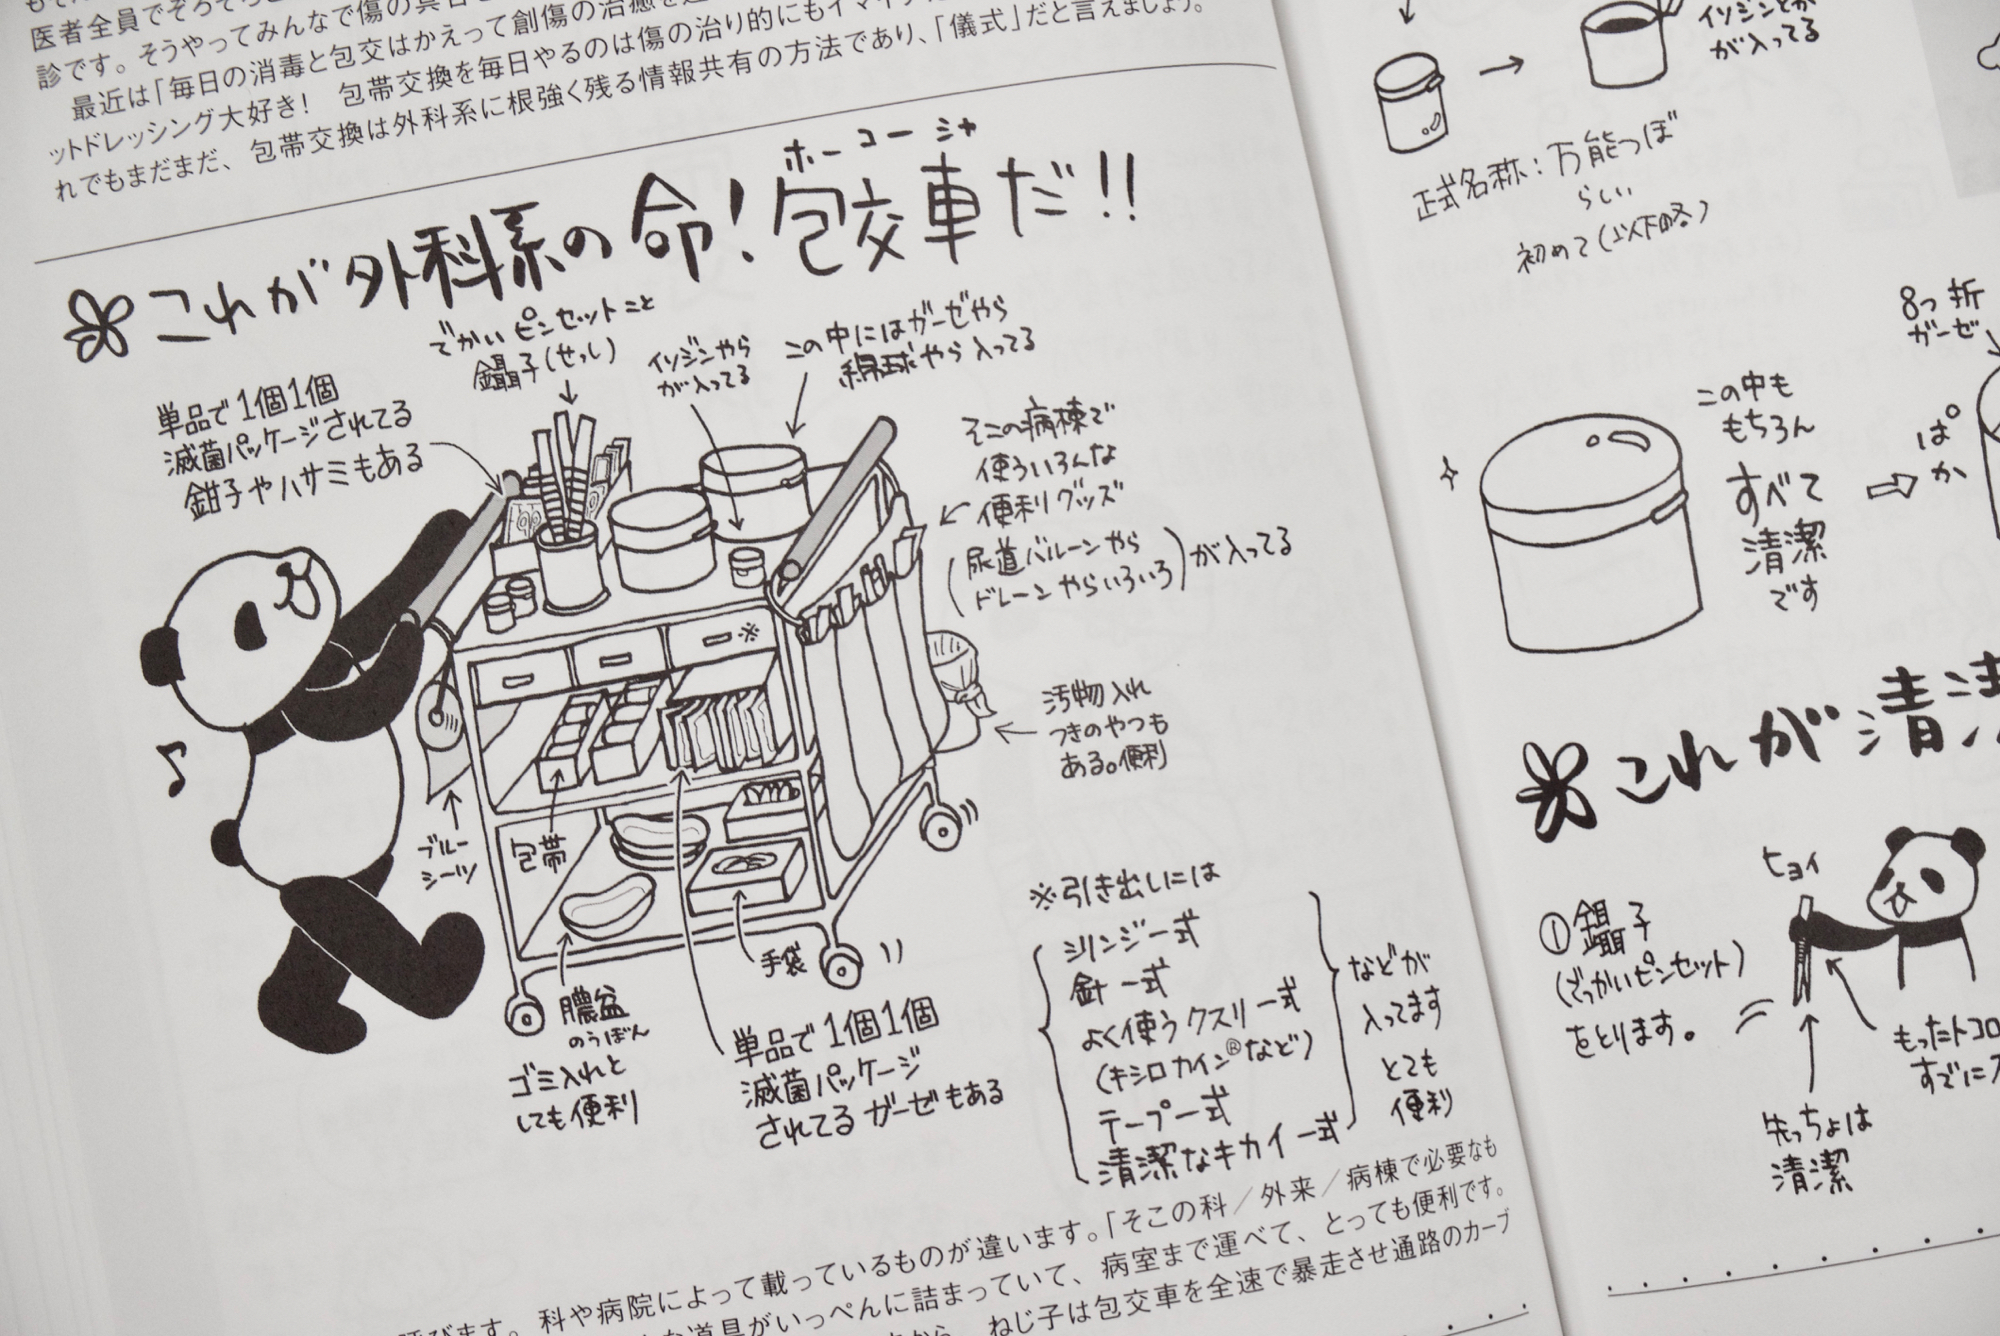 医者全員でぞろぞろと
診です。そうやってみんなで傷の具合を
最近は「毎日の消毒と包交はかえって創傷の治癒を
ットドレッシング大好き！ 包帯交換を毎日やるのは傷の治り的にもイマイチ
れでもまだまだ、包帯交換は外科系に根強く残る情報共有の方法であり、「儀式」だと言えましょう。
ホーコーシャ
これが外科系の命！包交車だ!!
でかいピンセットこと
鑷子(せっし)
イソジンやら
が入ってる
この中にはガーゼやら
綿球やら入ってる
単品で1個1個
滅菌パッケージされてる
鉗子やハサミもある
そこの病棟で
使ういろんな
便利グッズ
(尿道バルーンやら
ドレーンやらいろいろ)が入ってる
※
汚物入れ
つきのやつも
ある。便利
♪
ブルー
シーツ
包帯
手袋
膿盆
のうぼん
ゴミ入れと
しても便利
単品で1個1個
滅菌パッケージ
されてるガーゼもある
※引き出しには
シリンジ一式
針一式
よく使うクスリ一式
(キシロカイン®など)
テープ一式
清潔なキカイ一式
などが
入ってます
とても
便利
呼びます。科や病院によって載っているものが違います。「そこの科／外来／病棟で必要なも
な道具がいっぺんに詰まっていて、病室まで運べて、とっても便利です。
から、ねじ子は包交車を全速で暴走させ通路のカーブ
イソジンとか
が入ってる
正式名称：万能つぼ
らしい
初めて(以下略)
8つ折
ガーゼ
この中も
もちろん
すべて
清潔
です
ぱ
か
これが清潔
ヒョイ
①鑷子
(でっかいピンセット)
をとります。
もったトコロ
すでに
先っちょは
清潔